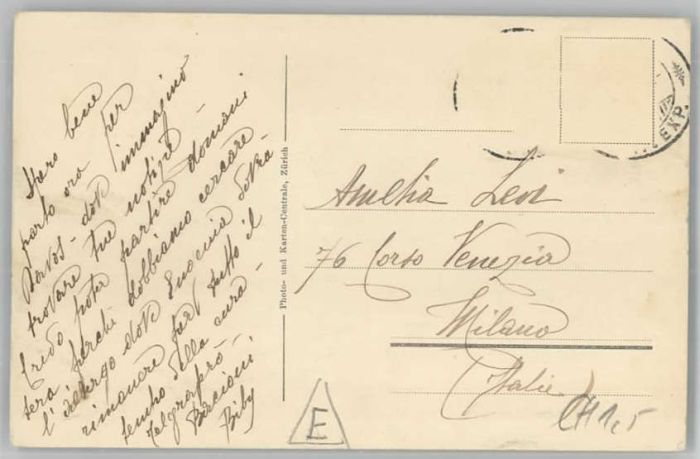 Staro bene
parto ora per
Davos - dove immagino
trovare tue notizie -
Credo potrà partire domani
sera perchè dobbiamo cercare
l'albergo dove Enrichia dovrà
rimanere per tutto il
tempo della cura -
Telegraferò -
Bacioni
Biby
Photo- und Karten-Centrale, Zürich
EXP.
Amelia Levi
76 Corso Venezia
Milano
Italie
E
CH 1,5